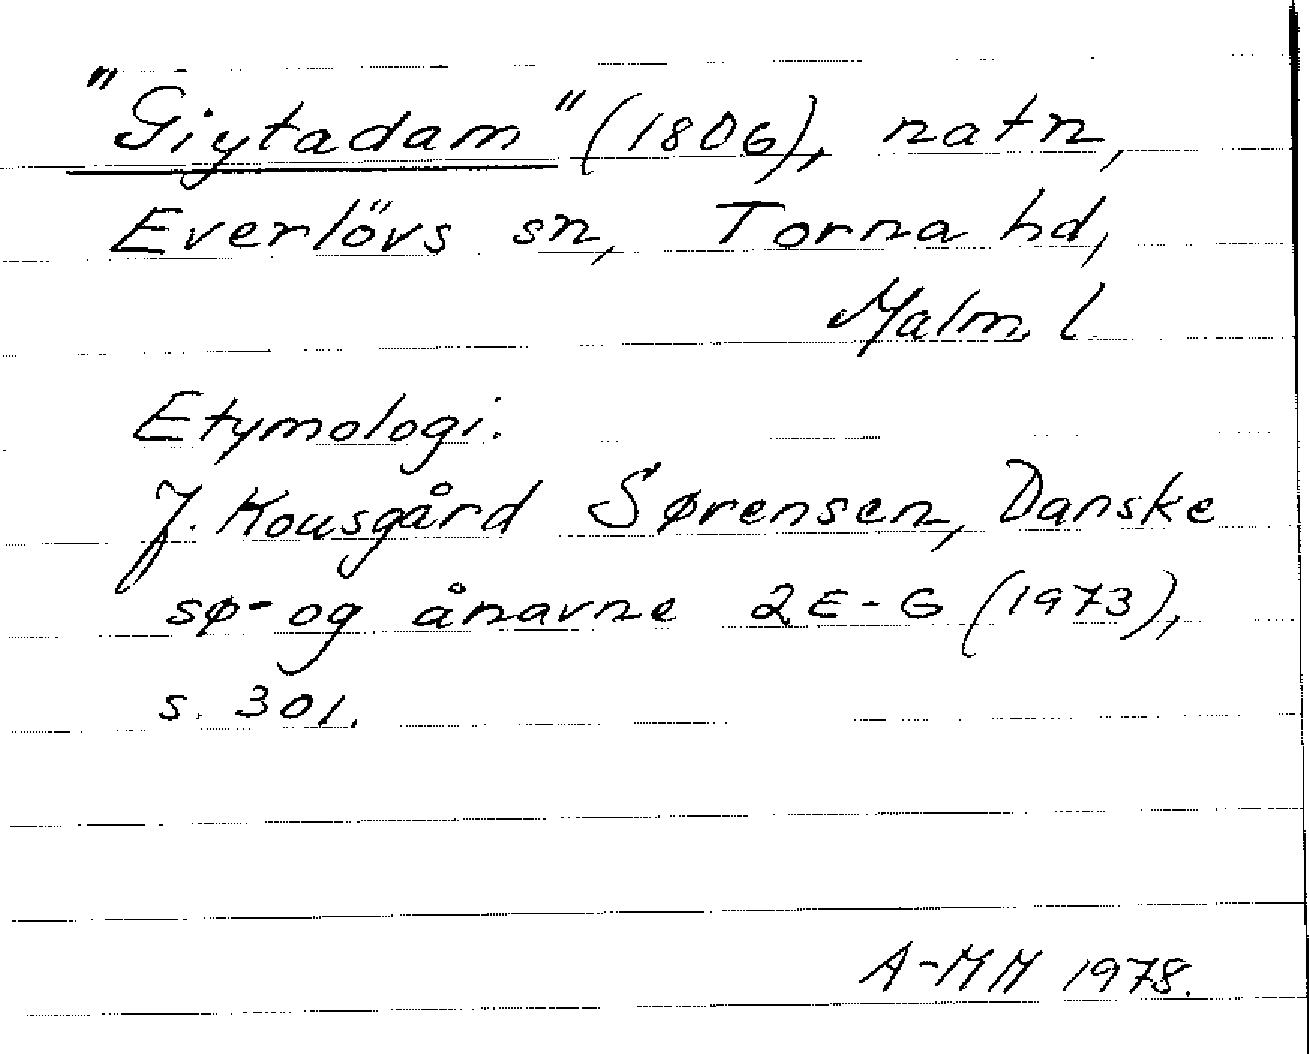 "Giytadam" (1806), natn,
Everlövs sn, Torna hd,
Malm. l
Etymologi.
J. Kousgård Sørensen, Danske
sø- og ånavne 2 E-G (1973),
s. 301.
A-MM 1978.